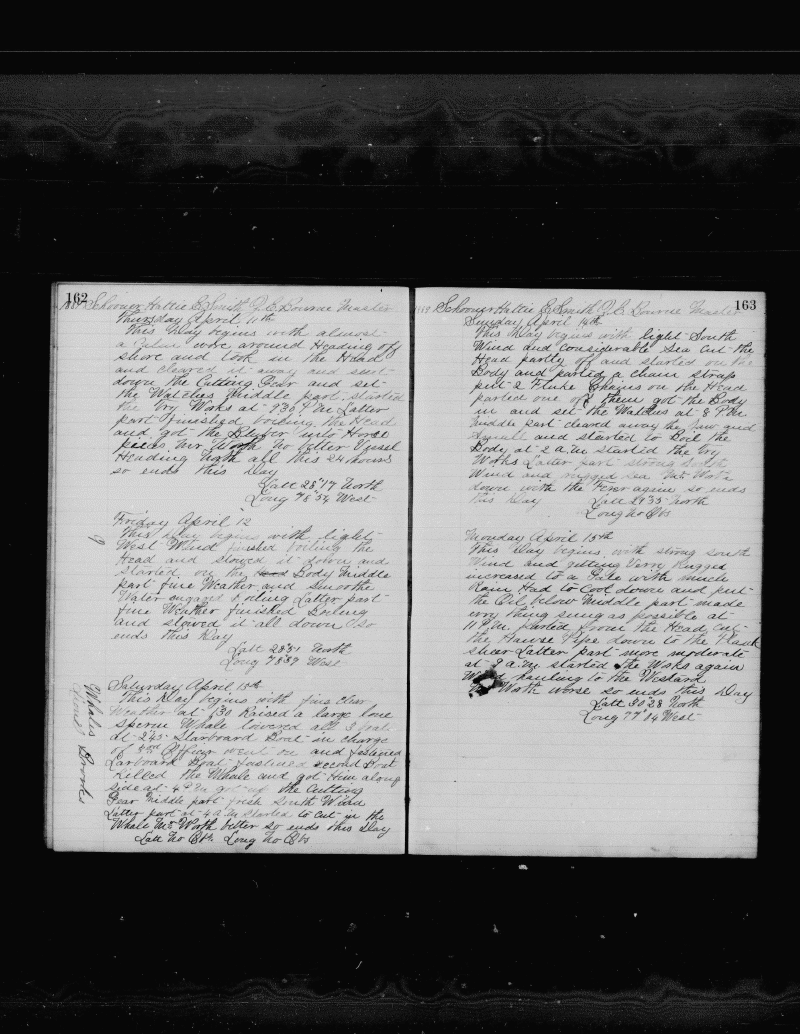 162
Schooner Hattie E Smith J. E. Bourne Master
Thursday April 11th
This Day begins with almost
a wore around Heading off
shore and took in the Head
and cleared it away and sent
down the Cutting Gear and set
the Watches Middle part started
the Try Works at 9.30 P.M. Latter
part finished boiling the Head
and got the Blubber into Horse
pieces Mr Worth no better Vessel
Heading North all this 24 hours
so ends this Day
Latt 28°17 North
Long 78°54 West
Friday April 12
This Day begins with light
West Wind finished boiling the
Head and stowed it down and
started on the Body Middle
part fine Weather and Smoothe
Water engaged boiling Latter part
fine Weather finished Boiling
and stowed it all down So
ends this Day
Latt 28°51 North
Long 78°59 West
Saturday April 13th
This Day begins with fine clear
Weather at 1.30 Raised a large lone
Sperm Whale lowered all 3 boats
At 2.45 Starboard Boat in charge
of Officer went on and fastened
Larboard Boat fastened second Boat
Killed the Whale and got Him along
side at 4 P.M. got up the Cutting
Gear Middle part fresh South Wind
Latter part at 4 A.M. started to cut in the
Whale Mr Worth better so ends this Day
Latt No Obs Long No Obs
Whales
163
Schooner Hattie E Smith J. E. Bourne Master
Sunday April 14th
This Day begins with light South
Wind and considerable Sea cut the
Head partly off and started on the
Body and parted a chain strap
put 2 Fluke Chains on the Head
parted one of them got the Body
in and set the Watches at 8 P.M.
Middle part cleared away the Jaw and
and started to Boil the
Body at 2 a.m. started the Try
Works Latter part strong South
Wind and rugged Sea Mr Worth
down with the Fever again so ends
this Day Latt 29°35 North
Long No Obs
Monday April 15th
This Day begins with strong South
Wind and getting Verry Rugged
increased to a Gale with much
Rain Had to Cool down and put
the Oil below Middle part made
evry thing snug as possible at
11 P.M. parted from the Head cut
the Hawse Pipe down to the Plank
shear Latter part more moderate
at 9 a.m. started the Works again
Wind hauling to the Westard
Worth worse so ends this Day
Latt 30°28 North
Long 77°14 West